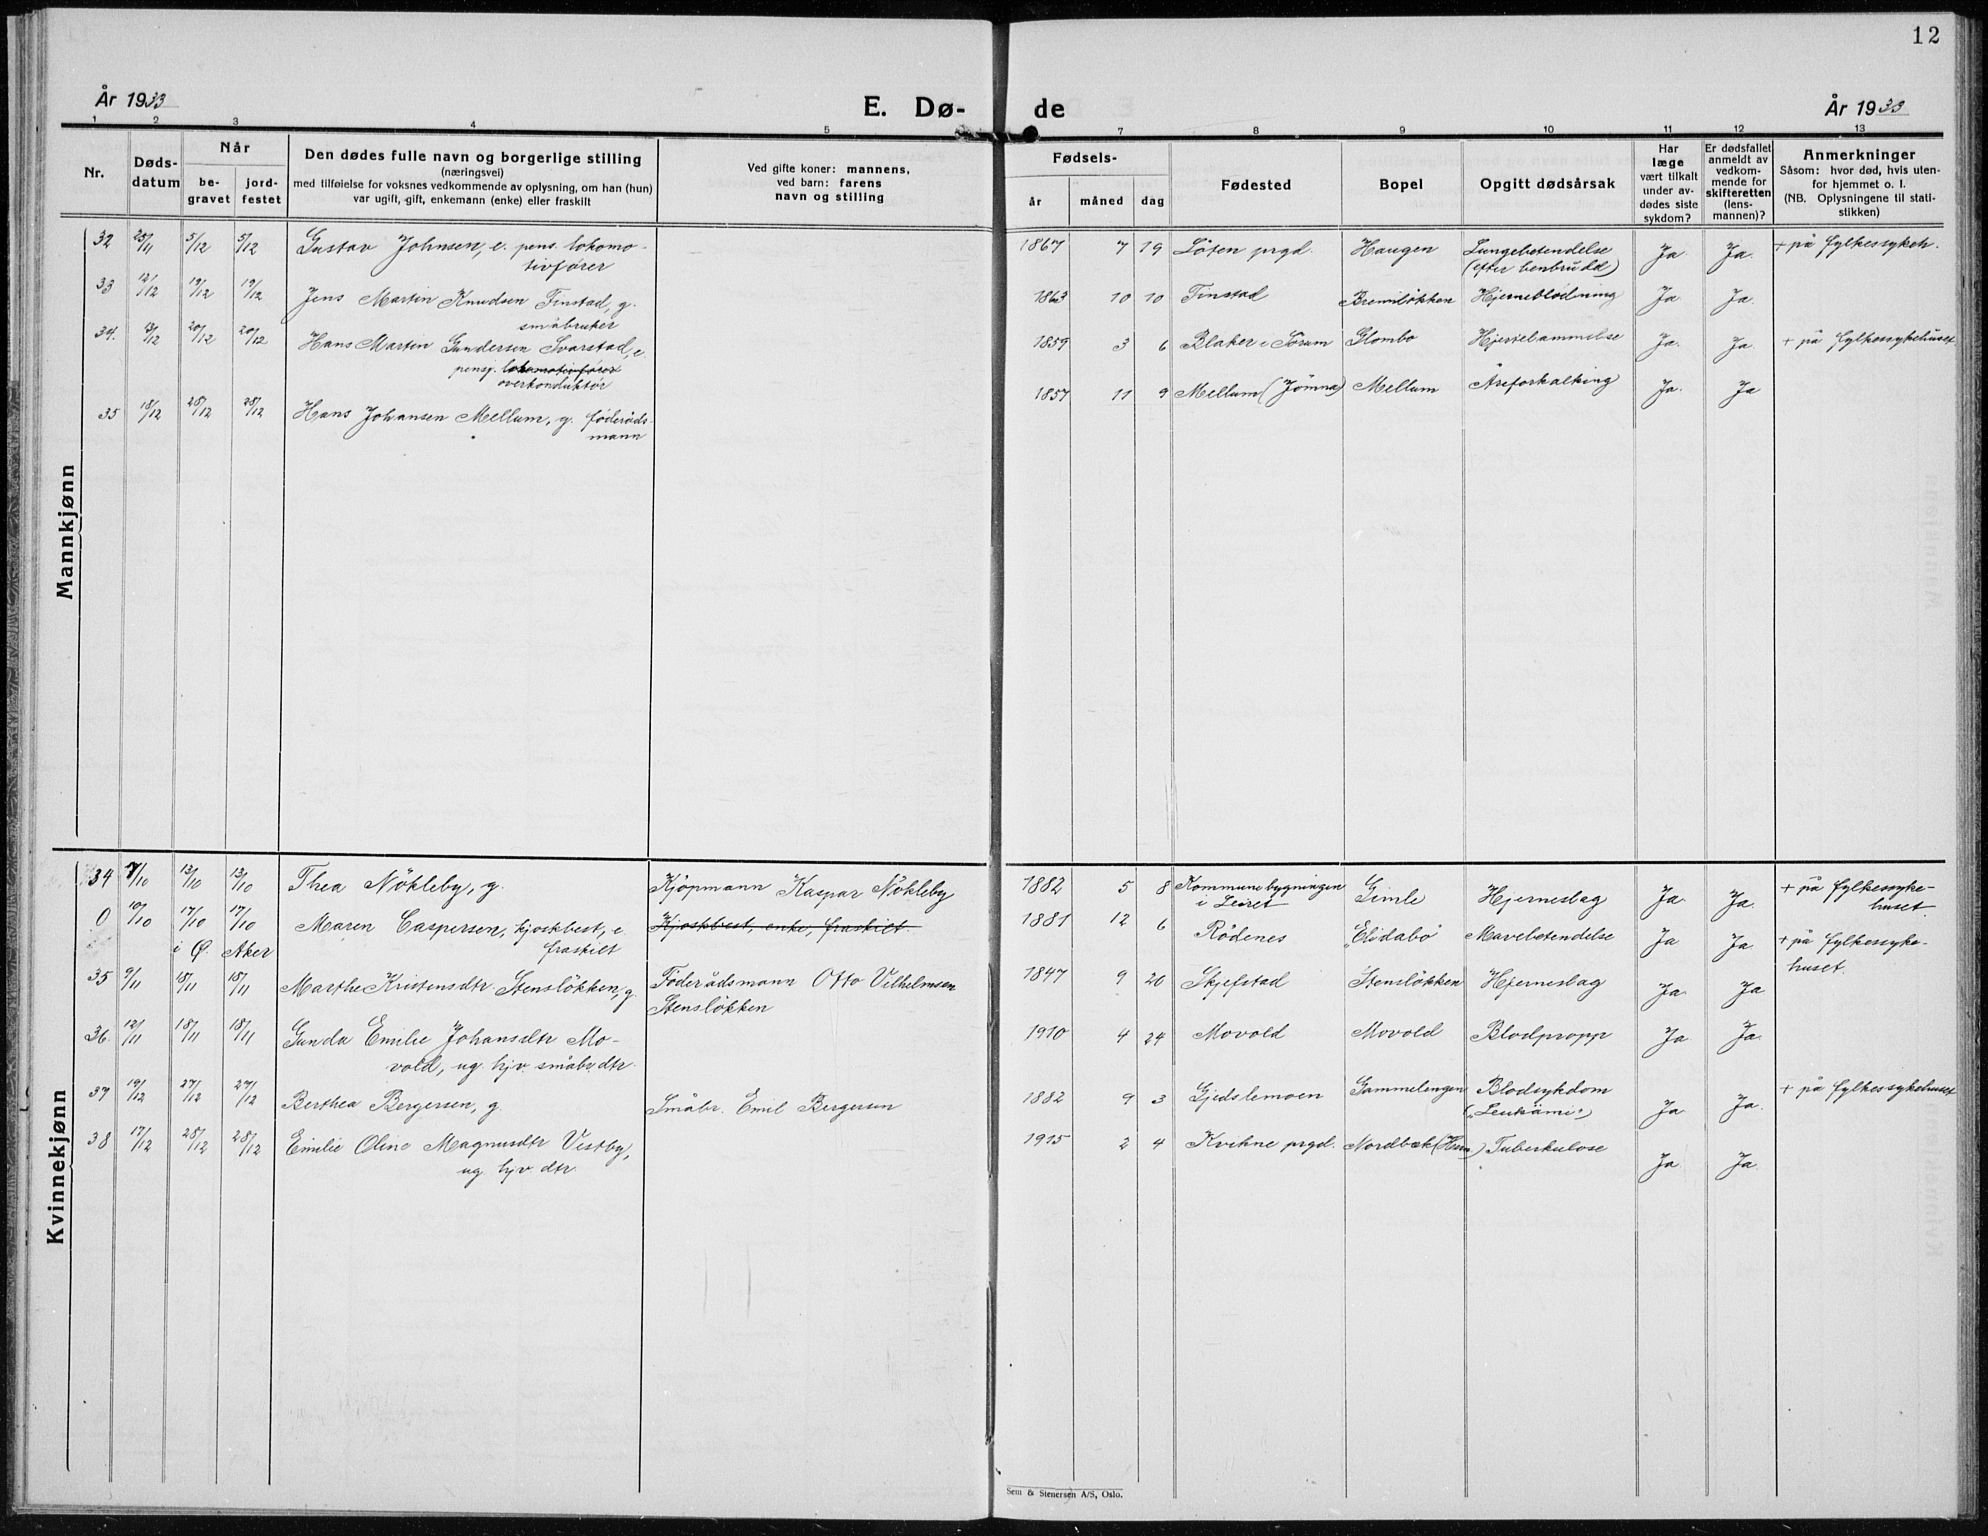 12
År 1933
E. Dø-
de
År 1933
1 2 3 4 5 7 8 9 10 11 12 13
Nr.
Døds-
datum
Når
be-
gravet
jord-
festet
Den dødes fulle navn og borgerlige stilling
(næringsvei)
med tilføielse for voksnes vedkommende av oplysning, om han (hun)
var ugift, gift, enkemann (enke) eller fraskilt
Ved gifte koner: mannens,
ved barn: farens
navn og stilling
Fødsels-
år måned dag
Fødested
Bopel
Opgitt dødsårsak
Har
læge
vært tilkalt
under av-
dødes siste
sykdom?
Er dødsfallet
anmeldt av
vedkom-
mende for
skifteretten
(lens-
mannen)?
Anmerkninger
Såsom: hvor død, hvis uten-
for hjemmet o. l.
(NB. Oplysningene til stati-
stikken)
Mannkjønn
32 25/11 5/12 5/12 Gustav Johnsen, e. pens. lokomo-
tivfører
1867 7 19 Löten prgd. Haugen Lungebetendelse
(efter benbrudd)
Ja Ja. + på fylkessykeh.
33 12/12 19/12 19/12 Jens Martin Knudsen Tinstad, g.
småbruker
1863 10 10 Tinstad Bremilökken Hjerneblödning Ja Ja.
34. 13/12 20/12 20/12 Hans Martin Gundersen Svarstad, e.
pensj. lokomotivfører
overkonduktör
1859 3 6 Blaker i Sörum Glombo Hjertelammelse Ja. Ja. + på fylkessykehuset
35 18/12 28/12 28/12 Hans Johansen Mellum, g. föderåds-
mann
1857 11 9 Mellum (Jömna) Mellum Åreforkalking Ja. Ja
Kvinnekjønn
34 7/10 13/10 13/10 Thea Nökleby, g. Kjöpmann Kaspar Nökleby
1882 5 8 Kommunebygningen
i Leiret
Gimle Hjerneslag Ja. Ja. + på fylkessyke-
huset.
0 10/10 17/10 17/10 Maren Caspersen, kjoskbest, e
i Ø. Aker fraskilt
Kjoskbest, enke, fraskilt
1881 12 6 Rödenes "Elidabo" Mavebetendelse Ja Ja + på fylkessyke-
huset.
35 9/11 18/11 18/11 Marthe Kristensdtr Stenslökken, g. Föderådsmann Otto Vilhelmsen
Stenslökken
1847 9 20 Skjefstad Stenslökken Hjerneslag Ja. Ja
36. 12/11 18/11 18/11 Gunda Emilie Johansdtr Mo-
vold, ug. hjv. småbr.dtr.
1910 4 24 Movold Movold Blodpropp Ja Ja.
37 19/12 27/12 27/12 Berthea Bergersen, g. Småbr. Emil Bergersen
1882 9 3 Gjedslemoen Gammelengen Blodsykdom
("Leukämi")
Ja Ja. + på fylkessykehuset
38 17/12 28/12 28/12 Emilie Oline Magnusdtr Vestby,
ug. hjv dtr.
1915 2 4 Kvikne prgd. Nordbæk (Hern) Tuberkulose Ja Ja.
Sem & Stenersen A/S, Oslo.